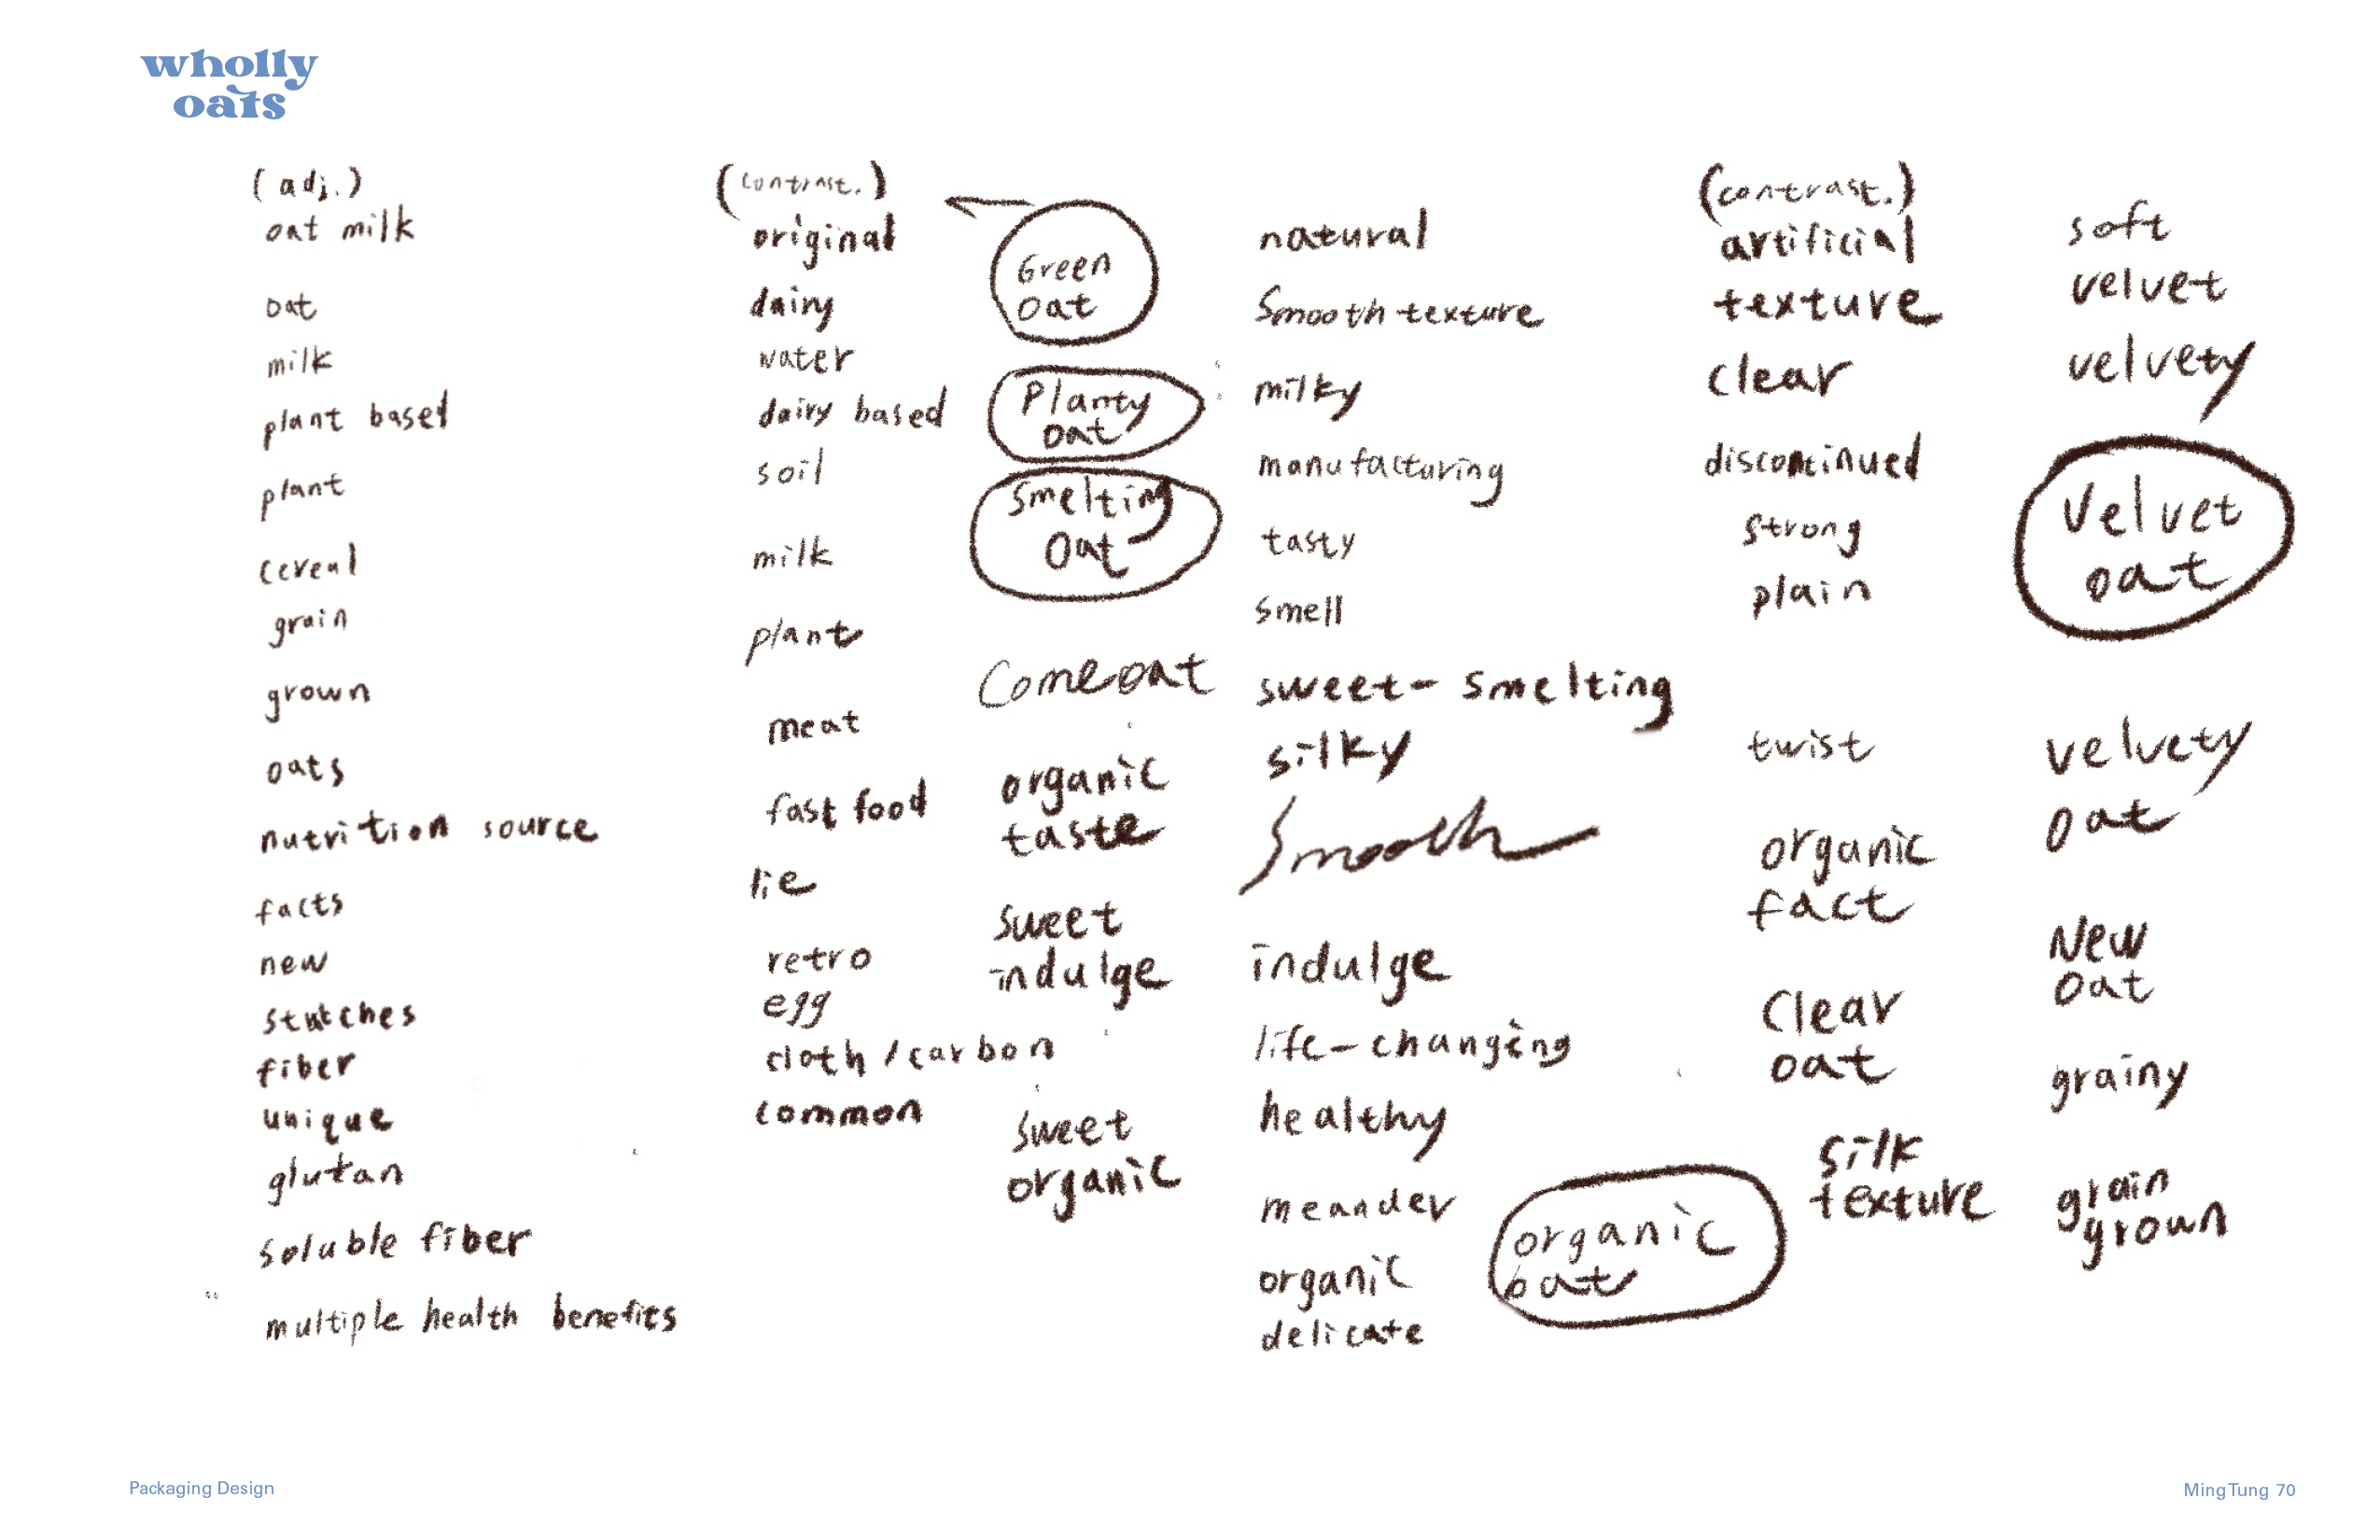 wholly
oats
(adj.)
oat milk
oat
milk
plant based
plant
cereal
grain
grown
oats
nutrition source
facts
new
fiber
unique
glutan
soluble fiber
multiple health benefits
(contrast.)
original
dairy
water
dairy based
soil
milk
plant
meat
fast food
lie
retro
egg
cloth / carbon
common
Green
oat
Planty
oat
Smelting
Oat
Comeoat
organic
taste
sweet
indulge
sweet
organic
natural
Smooth texture
milky
manufacturing
tasty
smell
sweet- smelting
silky
Smooth
indulge
life-changing
healthy
meander
organic
delicate
organic
oat
(contrast.)
artificial
texture
clear
discontinued
strong
plain
twist
organic
fact
Clear
oat
silk
texture
soft
velvet
velvety
Velvet
oat
velvety
oat
New
oat
grainy
grain
grown
Packaging Design
Ming Tung 70